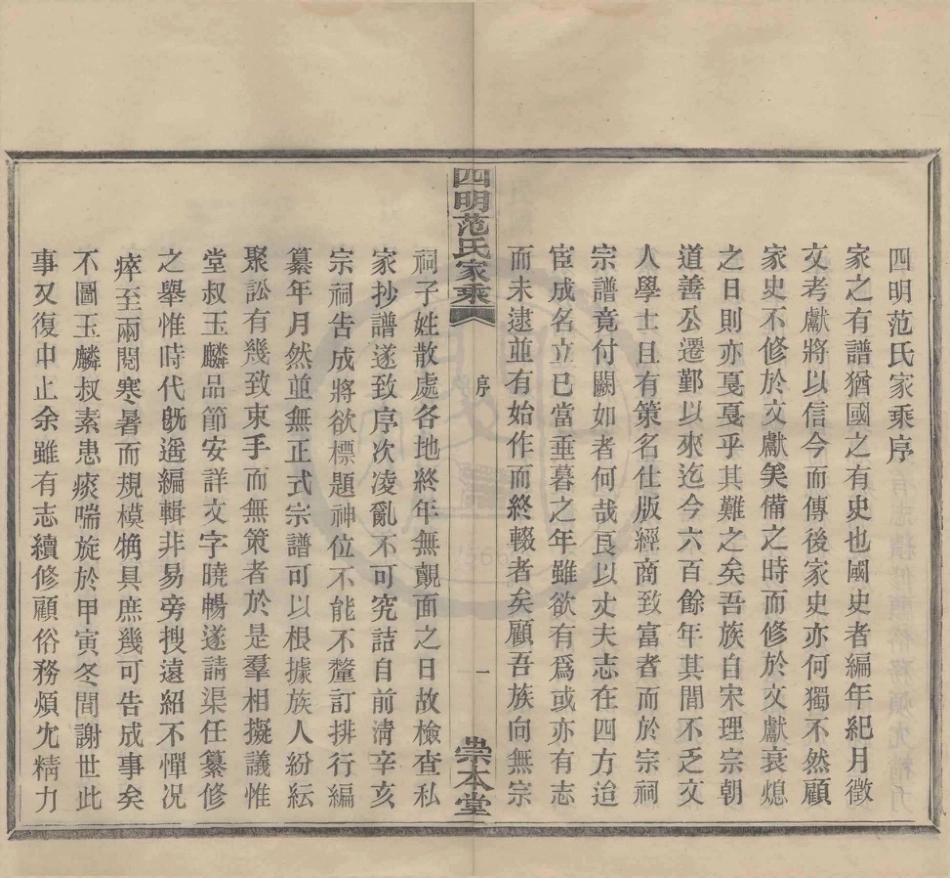 四明范氏家乘序
家之有譜猶國之有史也國史者編年紀月徵
文考獻將以信今而傳後家史亦何獨不然顧
家史不修於文獻美備之時而修於文獻衰熄
之日則亦戛戛乎其難之矣吾族自宋理宗朝
道善公遷鄞以來迄今六百餘年其間不乏文
人學士且有策名仕版經商致富者而於宗祠
宗譜竟付闕如者何哉良以丈夫志在四方迨
宦成名立已當垂暮之年雖欲有爲或亦有志
而未逮並有始作而終輟者矣顧吾族向無宗
四明范氏家乘
序
一
崇本堂
祠子姓散處各地終年無覿面之日故檢查私
家抄譜遂致序次凌亂不可究詰自前清辛亥
宗祠告成將欲標題神位不能不釐訂排行編
纂年月然並無正式宗譜可以根據族人紛紜
聚訟有幾致束手而無策者於是羣相擬議惟
堂叔玉麟品節安詳文字曉暢遂請渠任纂修
之舉惟時代旣遥編輯非易旁搜遠紹不憚况
瘁至兩閱寒暑而規模觕具庶幾可告成事矣
不圖玉麟叔素患痰喘旋於甲寅冬間謝世此
事又復中止余雖有志續修顧俗務煩尤精力